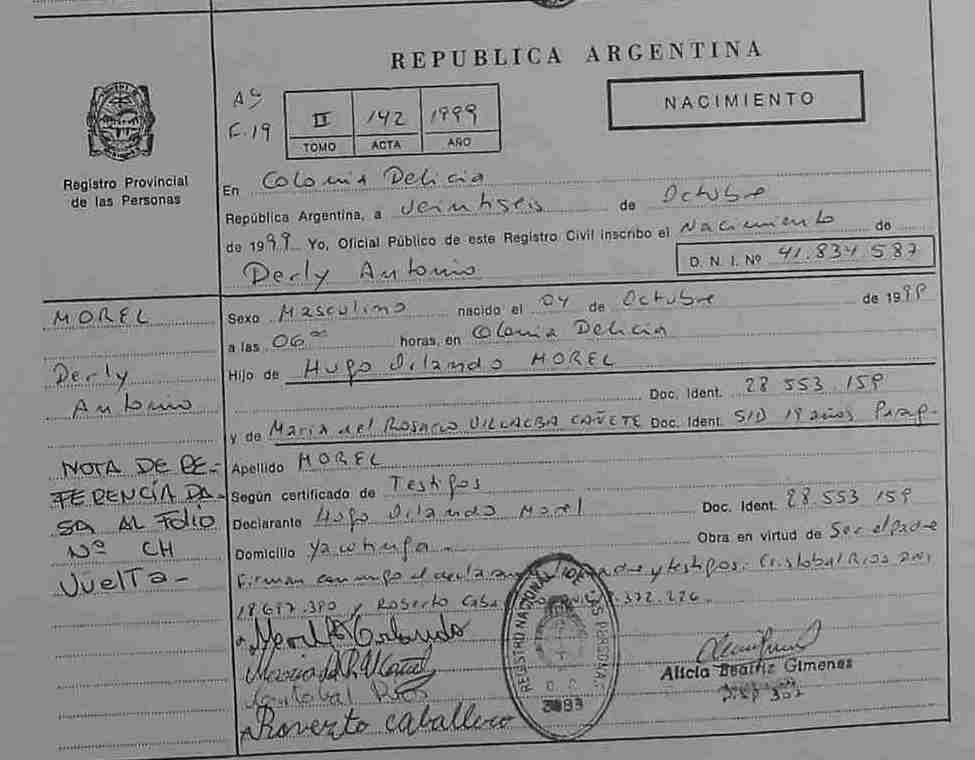 REPUBLICA ARGENTINA
NACIMIENTO
Aº
F. 19
II 142 1999
TOMO ACTA AÑO
Registro Provincial
de las Personas
En Colonia Delicia
República Argentina, a veintiseis de Octubre
de 1999 Yo, Oficial Público de este Registro Civil inscribo el Nacimiento de
Derly Antonio
D. N. I. Nº 41.834.587
MOREL
Derly
Antonio
Sexo Masculino nacido el 04 de Octubre de 1998
a las 06 horas, en Colonia Delicia
Hijo de Hugo Orlando MOREL
Doc. Ident. 28 553.159
y de Maria del Rosario VILLALBA CAÑETE Doc. Ident. S/D 19 años Parag.
NOTA DE RE-
FERENCIA PA-
SA AL FOLIO
Nº CH
VUELTA-
Apellido MOREL
Según certificado de Testigos
Declarante Hugo Orlando Morel Doc. Ident. 28 553 159
Domicilio Obra en virtud de Ser el padre
Firman conmigo el padre y testigos: Cristobal Rios DNI
18.697.390 y Roberto .372.226.
Morel Orlando
Cristobal Rios
Roverto caballero
REGISTRO NACIONAL DE LAS PERSONAS
Alicia Beatriz Gimenes